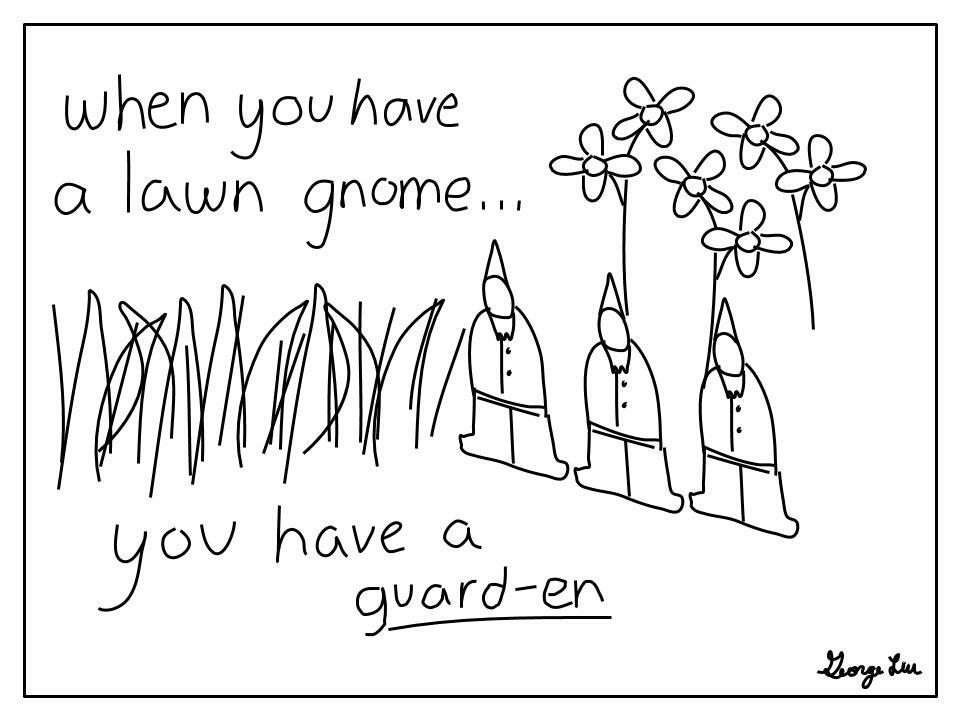 when you have
a lawn gnome...
you have a
guard-en
George Liu